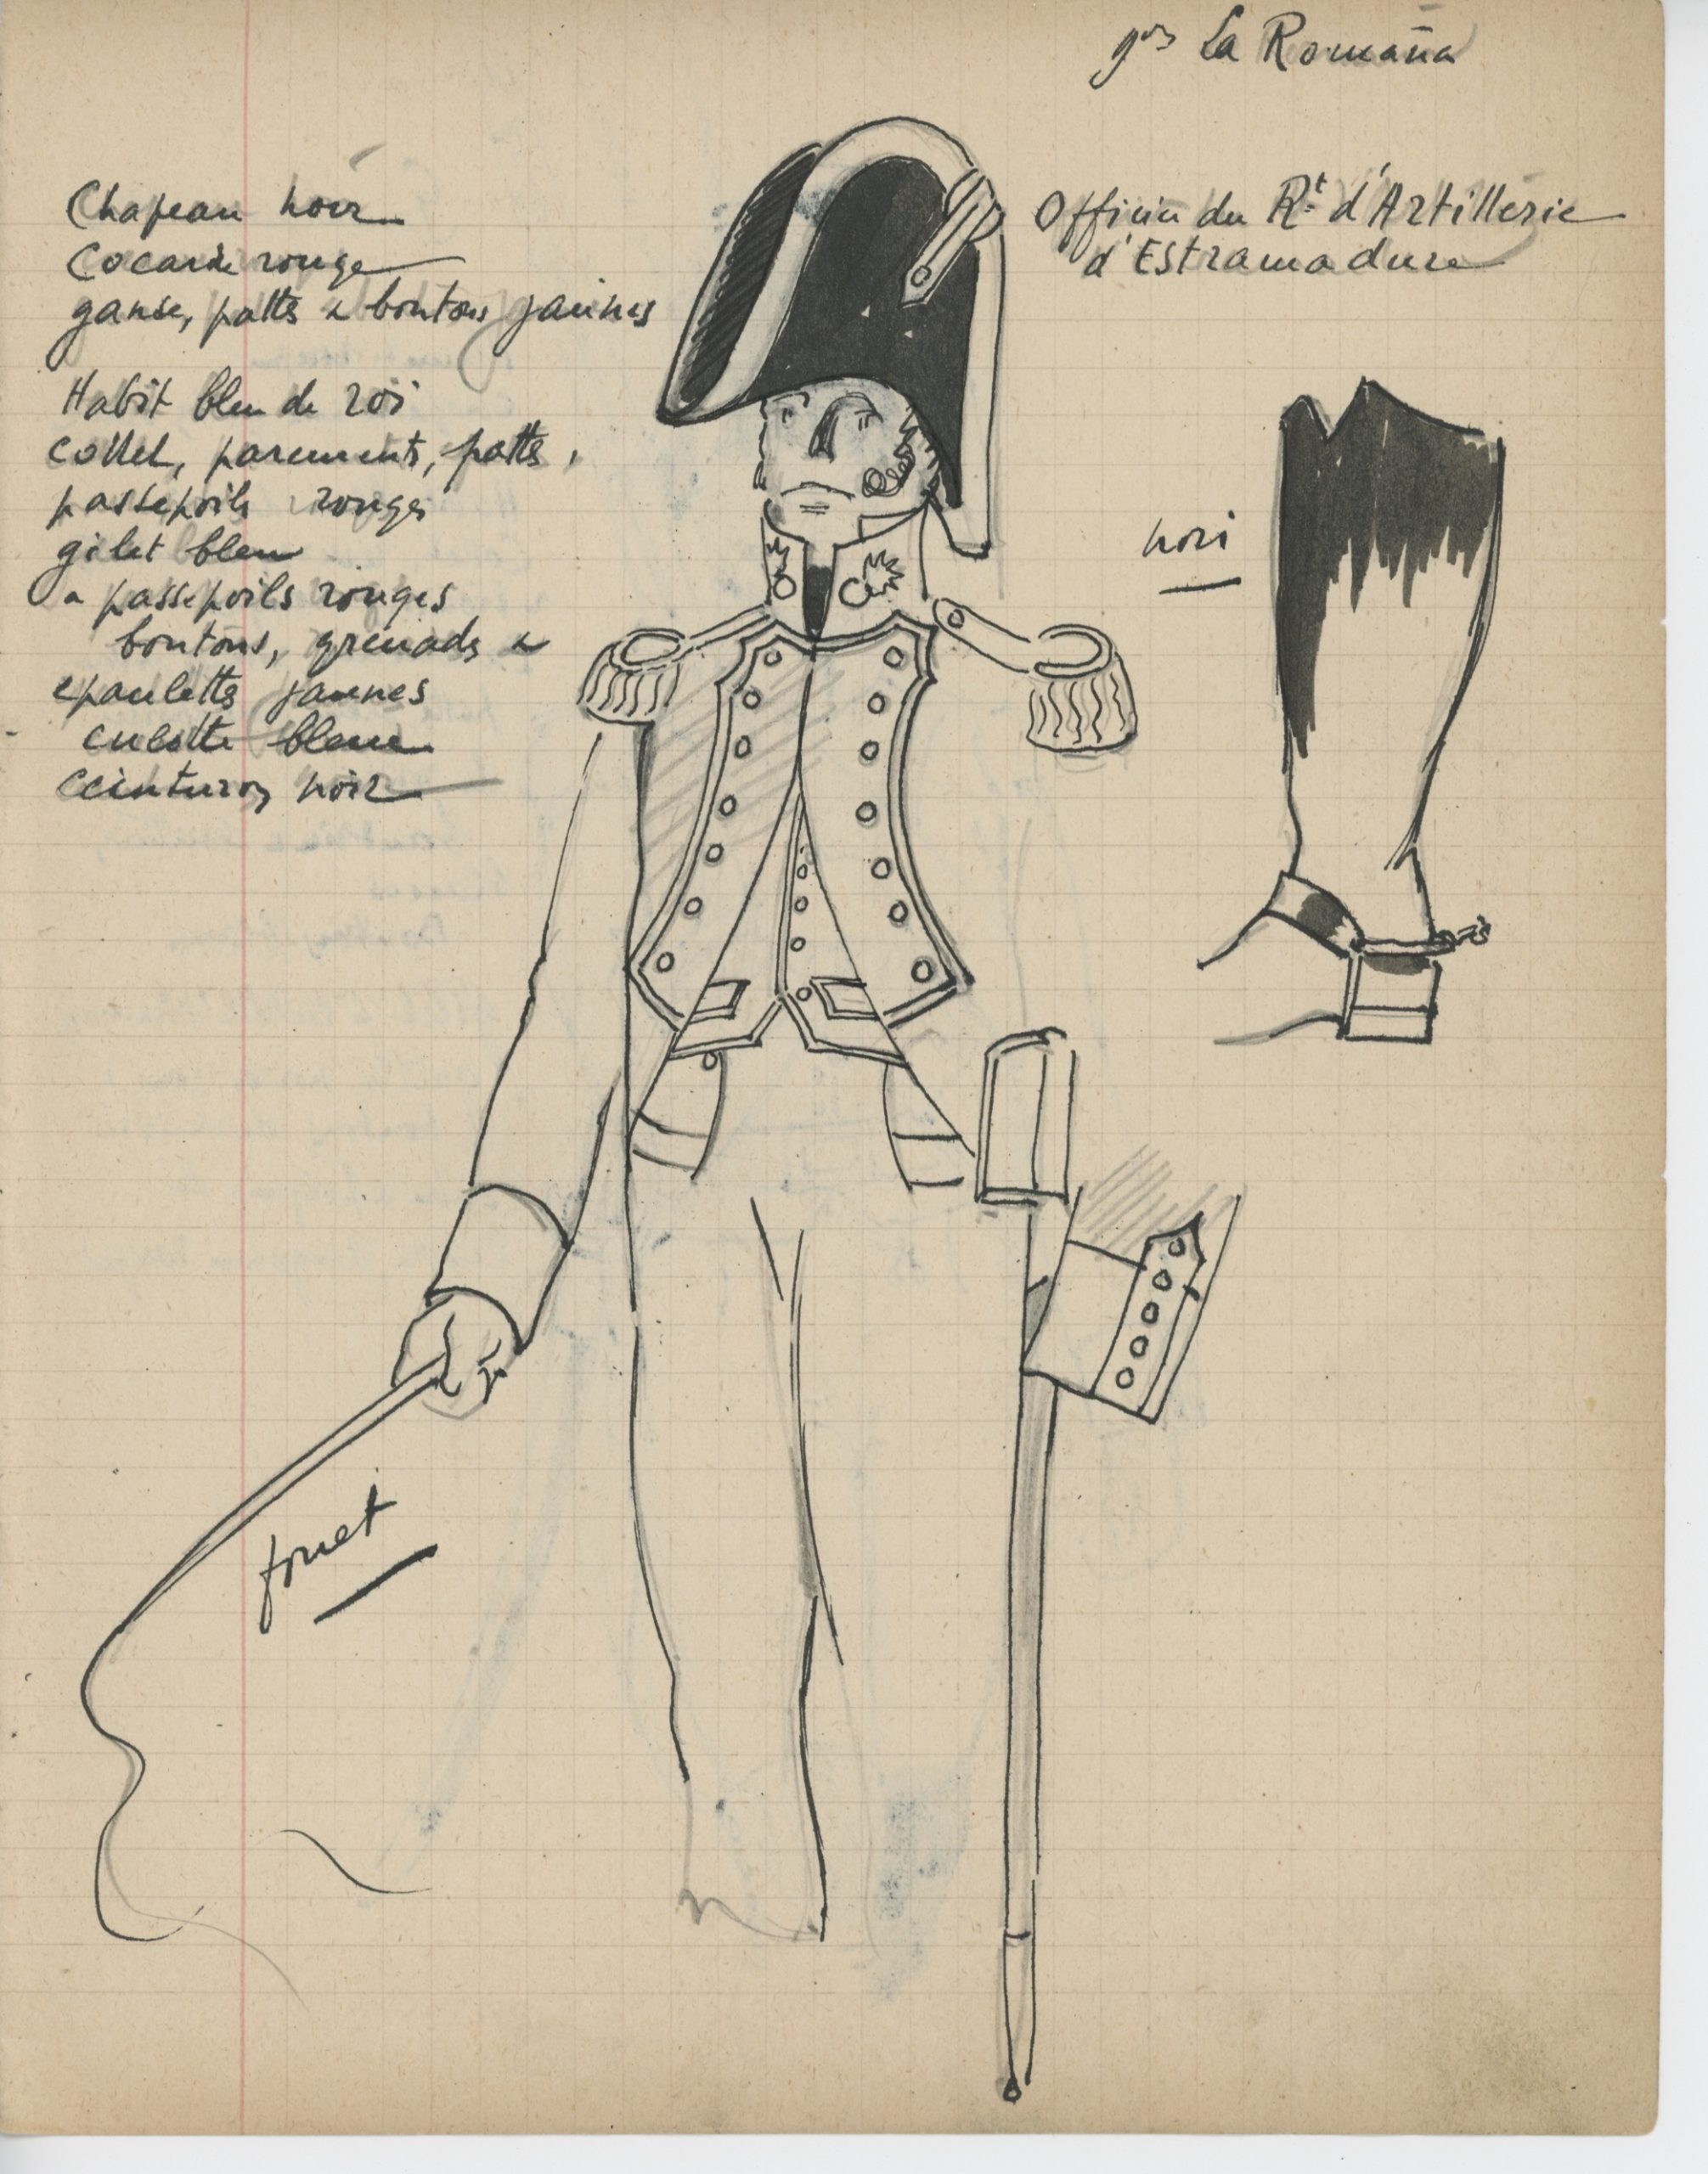 gon La Romaña
Officier du Rt d'Artillerie
d'Estramadure
Chapeau noir
Cocarde rouge
ganse, pattes & boutons jaunes
Habit bleu de roi
collet, parements, pattes,
passepoils rouges
gilet bleu
a passepoils rouges
boutons, grenades &
epaulettes jaunes
culotte bleue
Ceinturon noir
noir
fouet